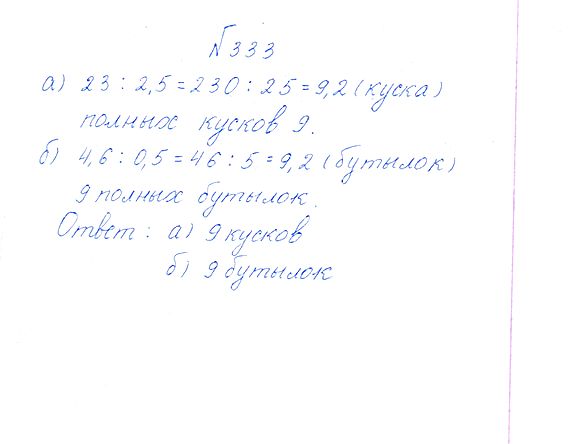 №333
а) 23 : 2,5 = 230 : 25 = 9,2 (куска)
полных кусков 9.
б) 4,6 : 0,5 = 46 : 5 = 9,2 (бутылок)
9 полных бутылок.
Ответ: а) 9 кусков
б) 9 бутылок